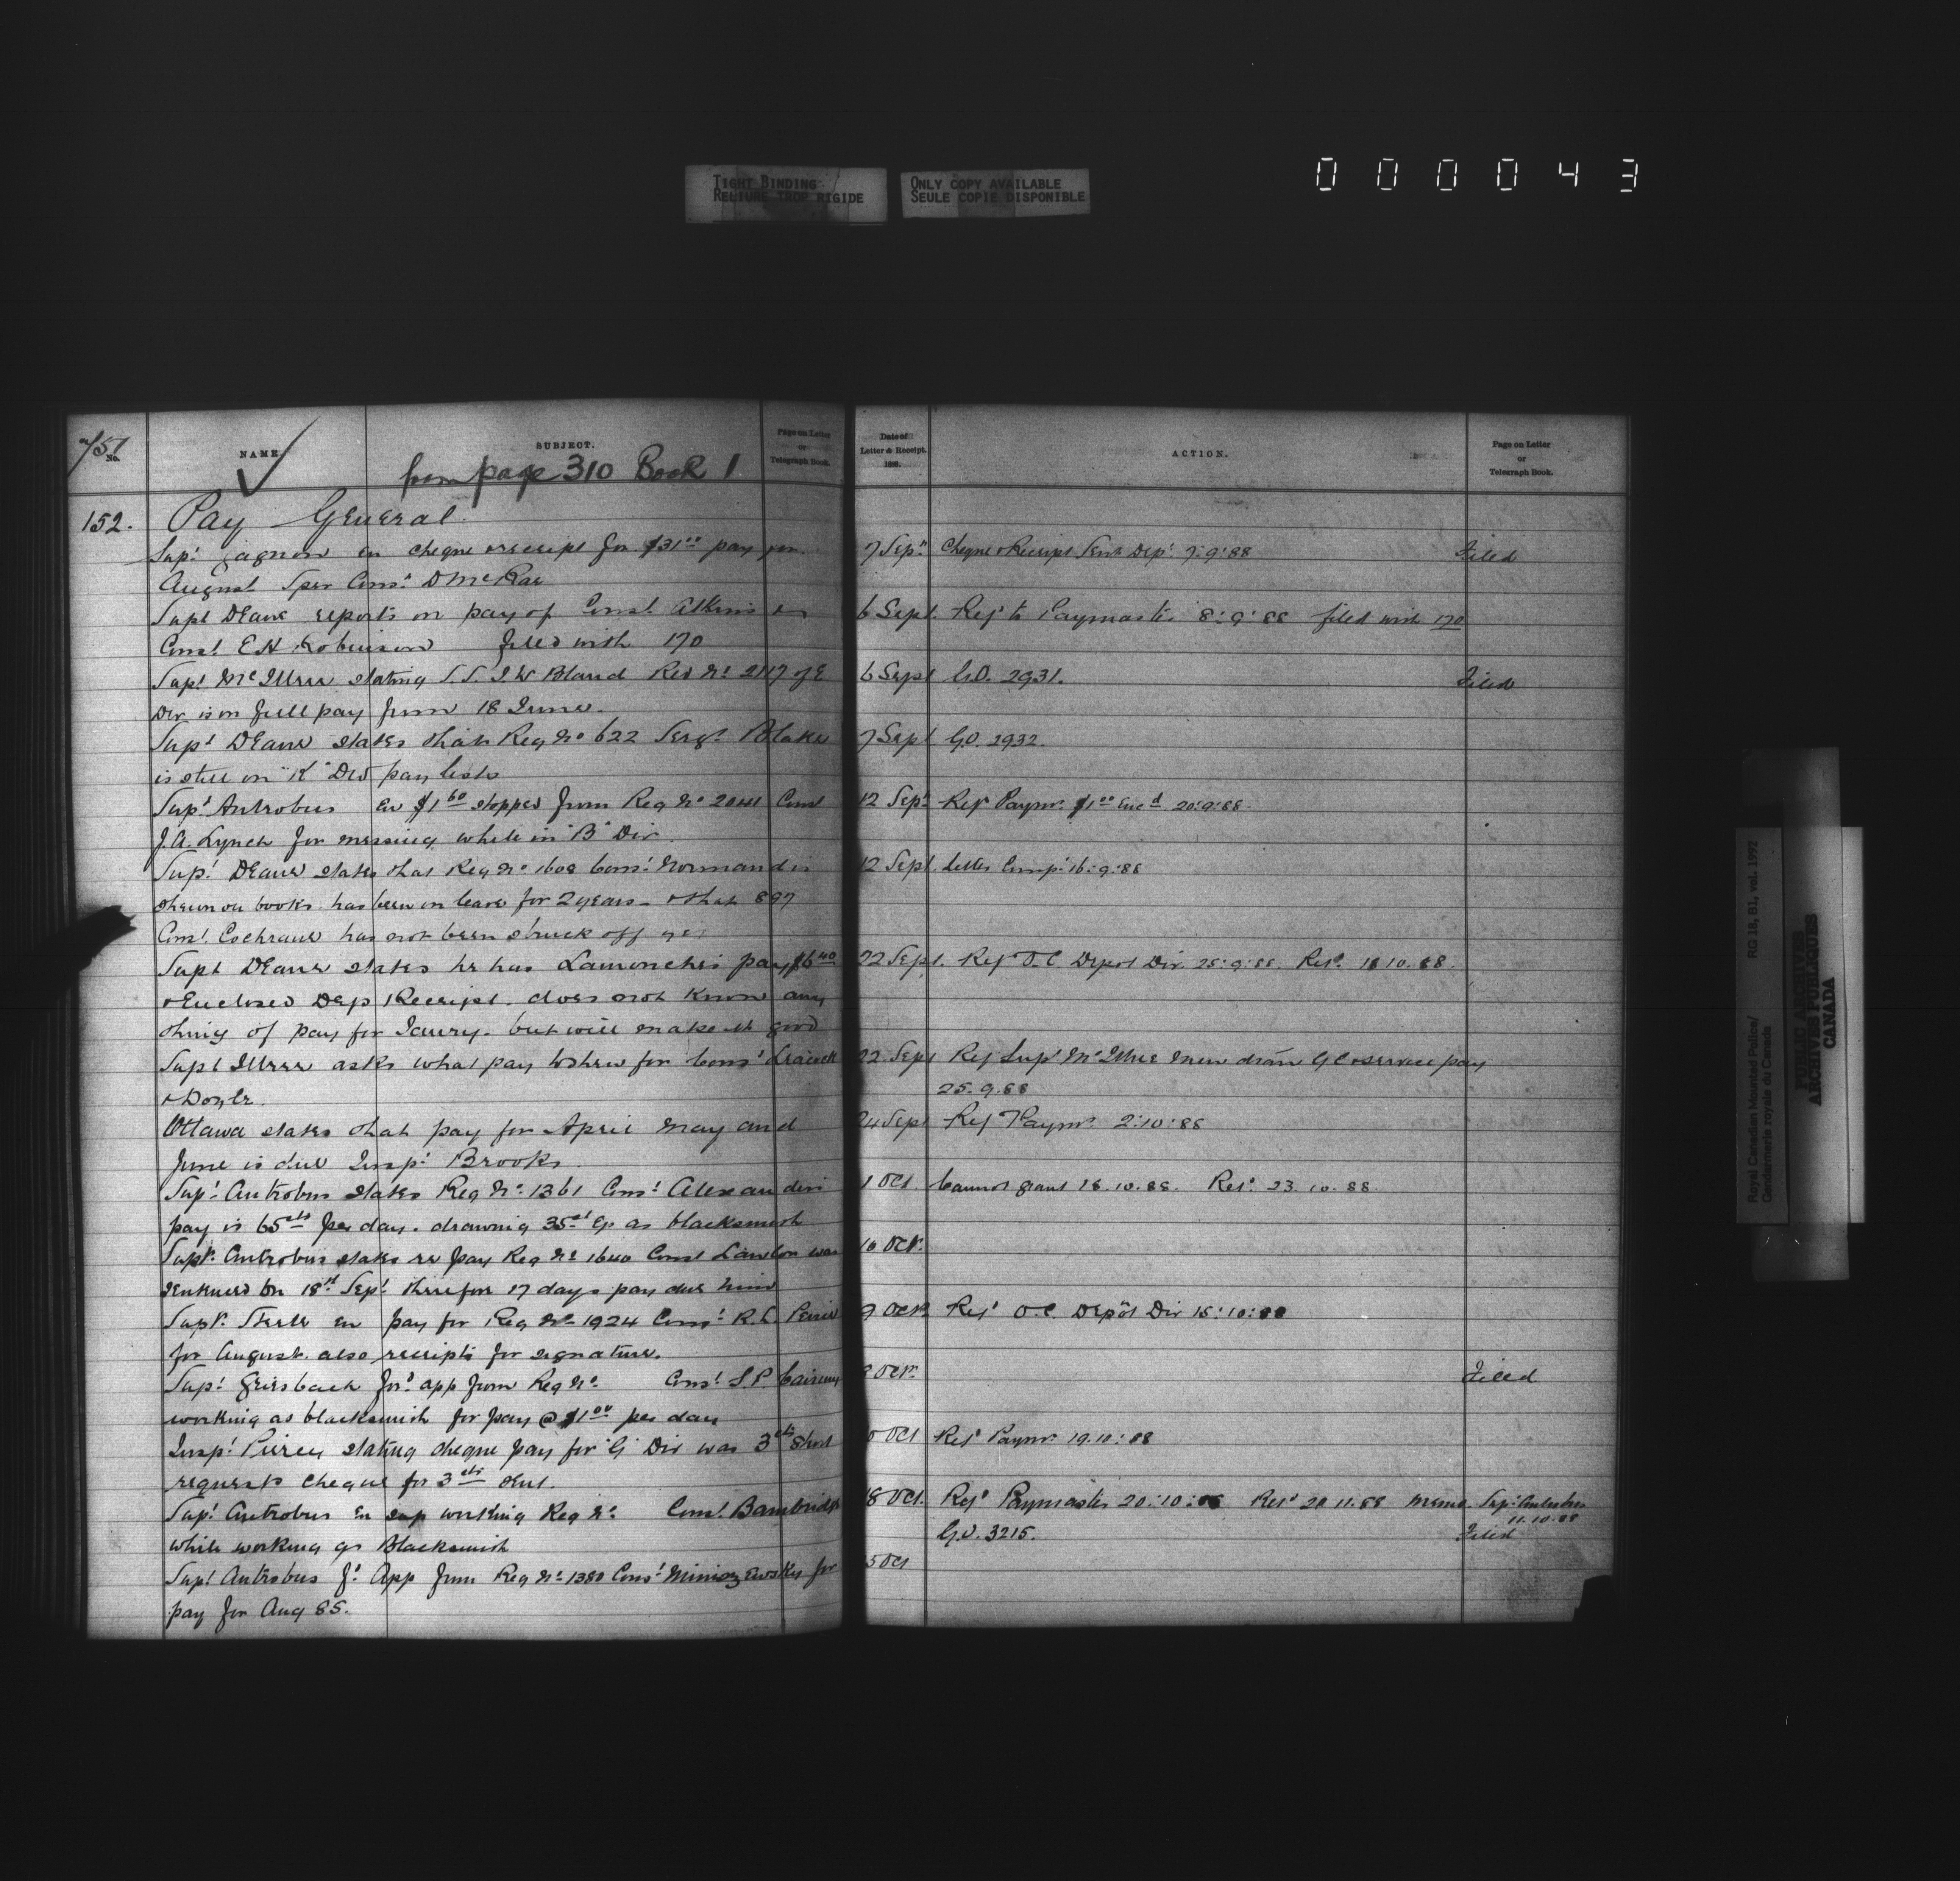 TIGHT BINDING
RELIURE TROP RIGIDE
ONLY COPY AVAILABLE
SEULE COPIE DISPONIBLE
0 0 0 0 4 3
No.
NAME
SUBJECT.
from page 310 Book 1
Page on Letter
or
Telegraph Book.
152. Pay General.
cheque & receipt for $31 00 pay for
August Spec Cons. D McRae
Supt Deane reports on pay of Const Atkins
Const E H Robinson filed with 170
stating S. S. J. W Bland Reg No 2117 of E
Div is on full pay from 18 June.
Supt Deane states that Reg No 622 Sergt Blake
is still on "K" Div pay lists
Supt Antrobus En $1 60 stopped from Reg No 2041 Const
J. A. Lynch for messing while in "B" Div
Supt Deane states that Reg No 1608 Const Normand is
shewn on books has been on leave for 2 years - & that 897
Const Cochrane has not been struck off yet
Supt Deane states he has pay $6 40
& Enclosed Dep Receipt. does not know any
thing of pay for but will make it good
asks what pay to shew for Const
& Doyle.
Ottawa states that pay for April May and
June is due Insp. Brooks.
Supt Antrobus states Reg No 1361 Const Alexanders
pay is 65 cts per day. drawing 35 ct as blacksmith
Supt Antrobus states re pay Reg No 1640 Const Lawton was
on 18th Sept. therefor 17 days pay due him
Supt. Steele en pay for Reg No 1924 Const R. C.
for August. also receipts for signature.
Supt Griesbach for'd app from Reg No Const S. P.
working as blacksmith for pay @ $1 00 per day
Insp. Piercy stating cheque pay for "G" Div was 3 cts short
requests cheque for 3 cts
Supt Antrobus working Reg No Const Bambridge
while working as Blacksmith
Supt Antrobus App from Reg No 1380 Const for
pay for Aug 85.
Date of
Letter & Receipt.
188.
ACTION.
Page on Letter
or
Telegraph Book.
7 Sept Cheque & Receipt Sent Dept 7:9:88 Filed
6 Sept. Ref to Paymaster 8:9:88 filed with 170
6 Sept G.O. 2931. Filed
7 Sept G.O. 2932.
12 Sept Ref Paymr. $1 00 Enc d 20:9:88.
12 Sept. Letter 16:9:88
22 Sept. Ref O.C Depot Div. 25:9:88. Ret. 18 10. 88.
22. Sept Ref Supt pay
25. 9. 88
24 Sept Ref Paymr. 2:10:88
1 Oct. Cannot grant 18.10.88. Ret. 23. 10. 88.
10 Oct.
9 Oct. Ref O.C. Depôt Div 15:10:88
Oct. Filed
Oct Ref Paymr. 19.10:88
18 Oct. Ref Paymaster 20:10:88 Ret 20 11.88 Memo. Supt Antrobus
11.10.88
G.O. 3215. Filed
Oct
Royal Canadian Mounted Police/
Gendarmerie royale du Canada
RG 18, B1, vol. 1992
PUBLIC ARCHIVES
ARCHIVES PUBLIQUES
CANADA